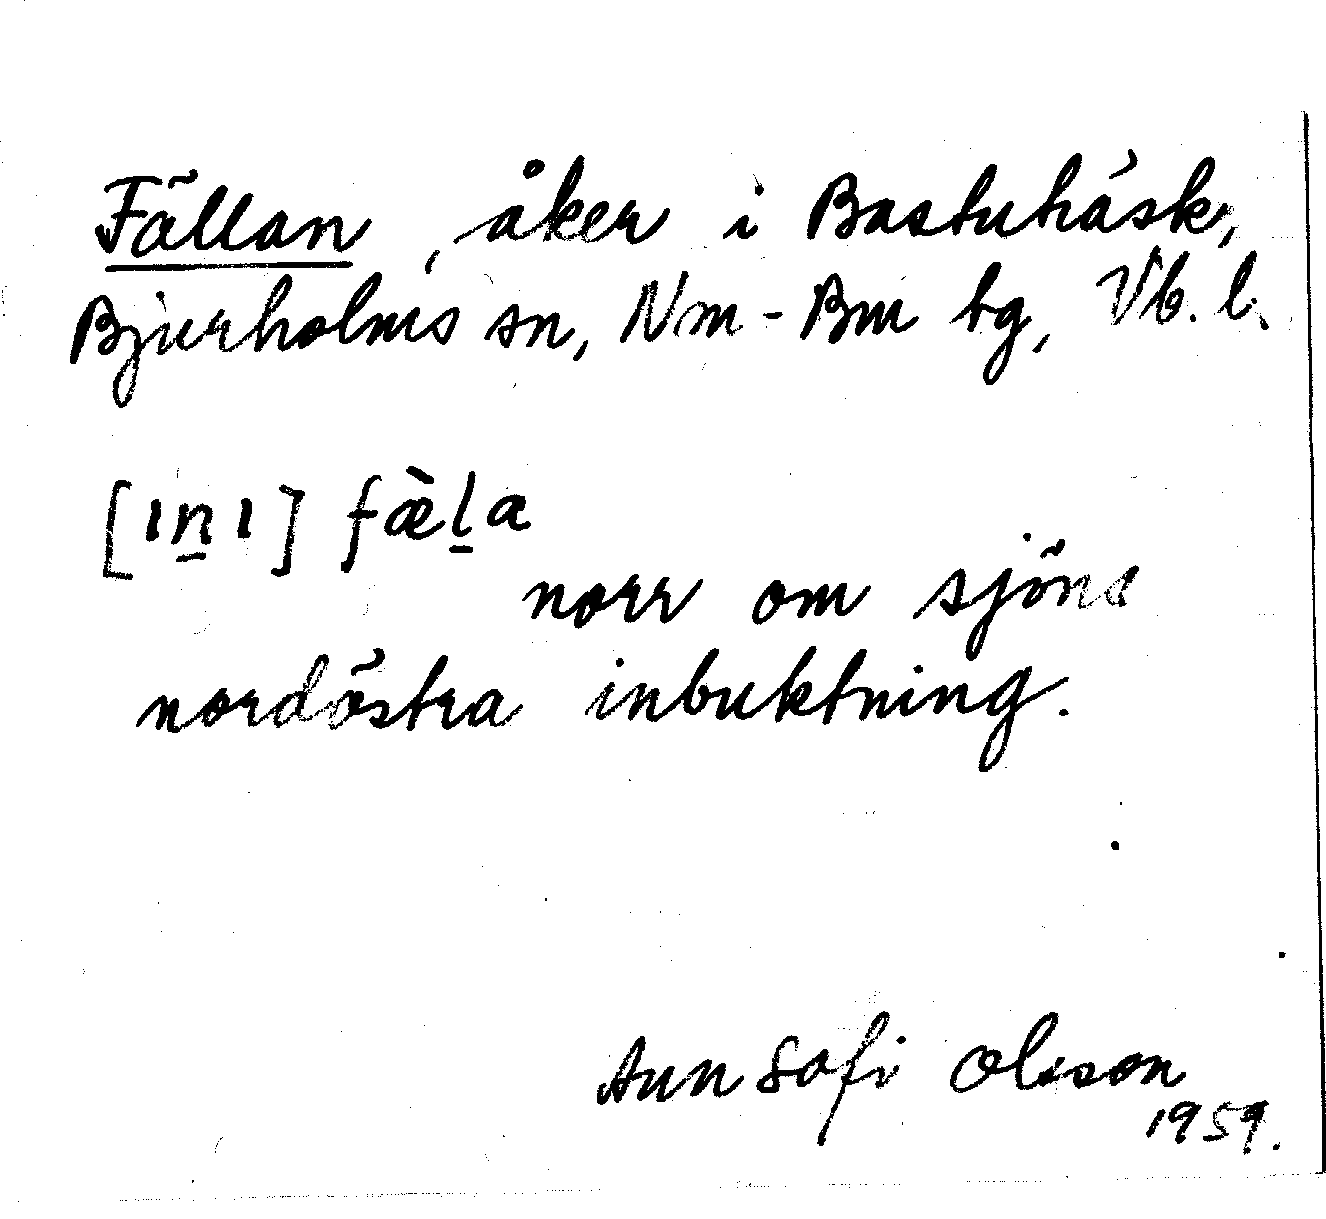 Fällan, åker i Bastuträsk,
Bjurholms sn, Nm-Bm tg, Vb. l.
[ıṉı] fæ̀ḻa
norr om sjöns
nordöstra inbuktning.
Ann Sofi Olsson
1959.